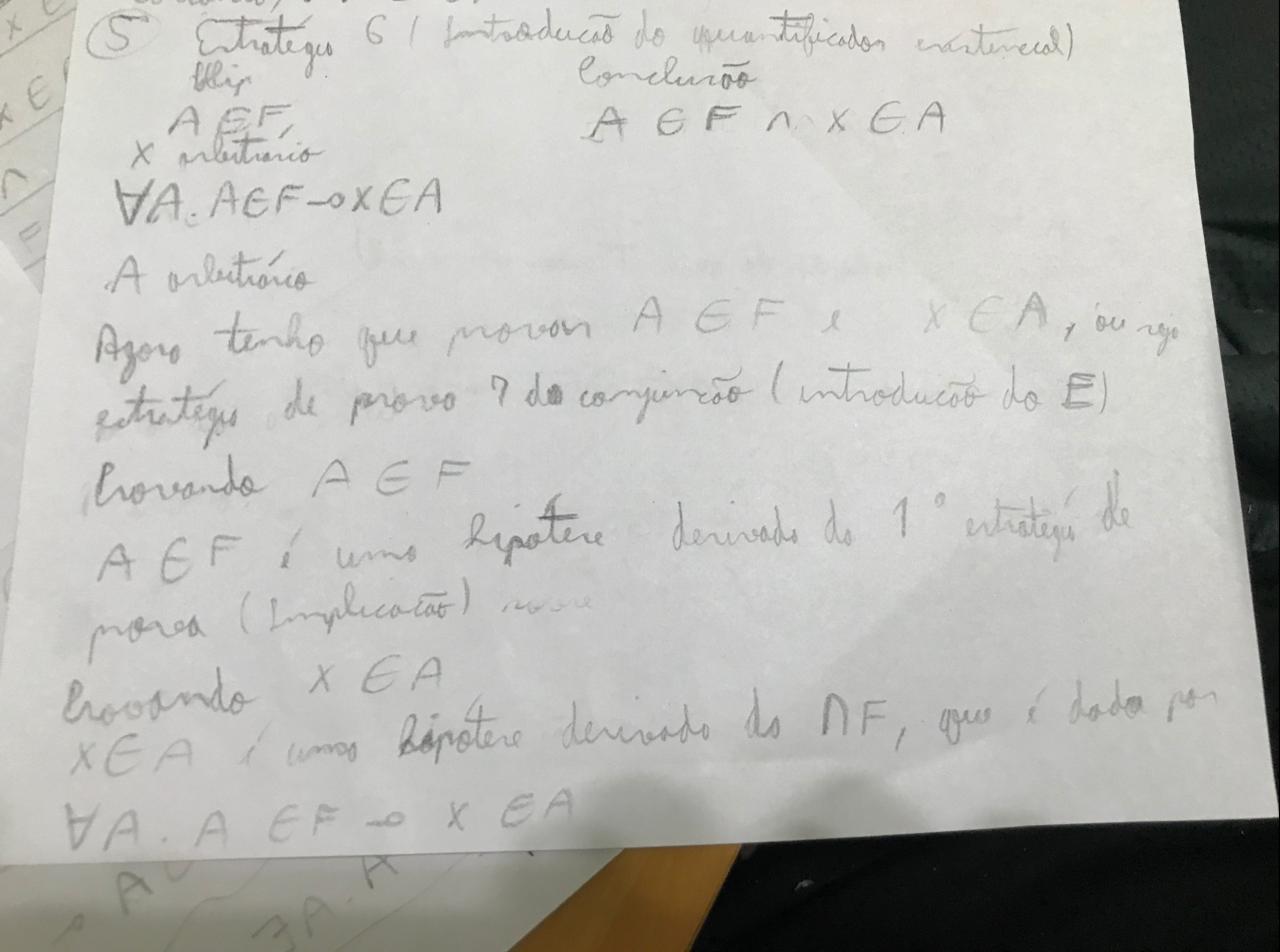 ⑤ Estratégia 6 ( Introdução do quantificador existencial)
Hip Conclusão
A ∈ F, A ∈ F ∧ x ∈ A
x arbitrário
∀A. A∈F→x∈A
A arbitrário
Agora tenho que provar A ∈ F e x ∈ A, ou seja
estratégia de prova 7 da conjunção (introdução do E)
Provando A ∈ F
A ∈ F é uma hipótese derivada da 1° estratégia de
prova (Implicação)
Provando x ∈ A
x∈A é uma hipótese derivada do ∩F, que é dada por
∀A. A ∈F → x ∈A
A
∃A. A